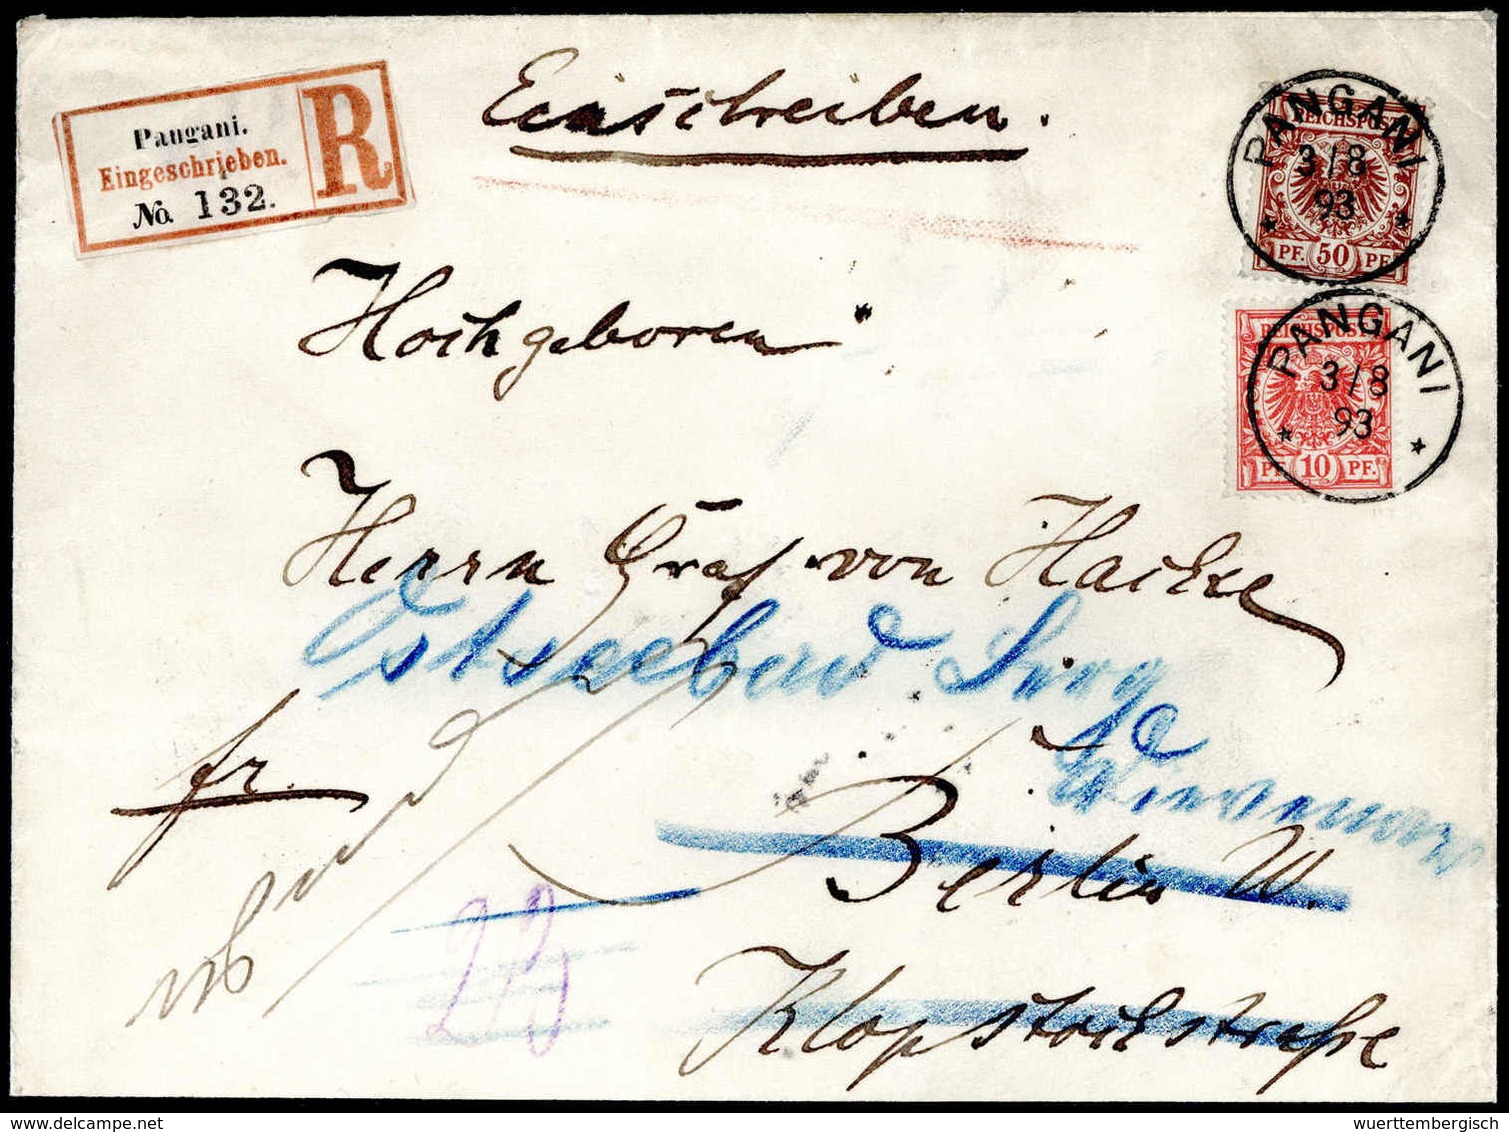 Einschreiben.
Pangani.
Eingeschrieben.
No. 132.
R
PANGANI
3/8
93
REICHSPOST
PF. 50 PF.
PANGANI
3/8
93
REICHSPOST
PF. 10 PF.
Hochgeboren
Herrn Graf von Hacke
Ostseebad
fr.
Berlin W.
Klopstockstraße
wuerttembergisch